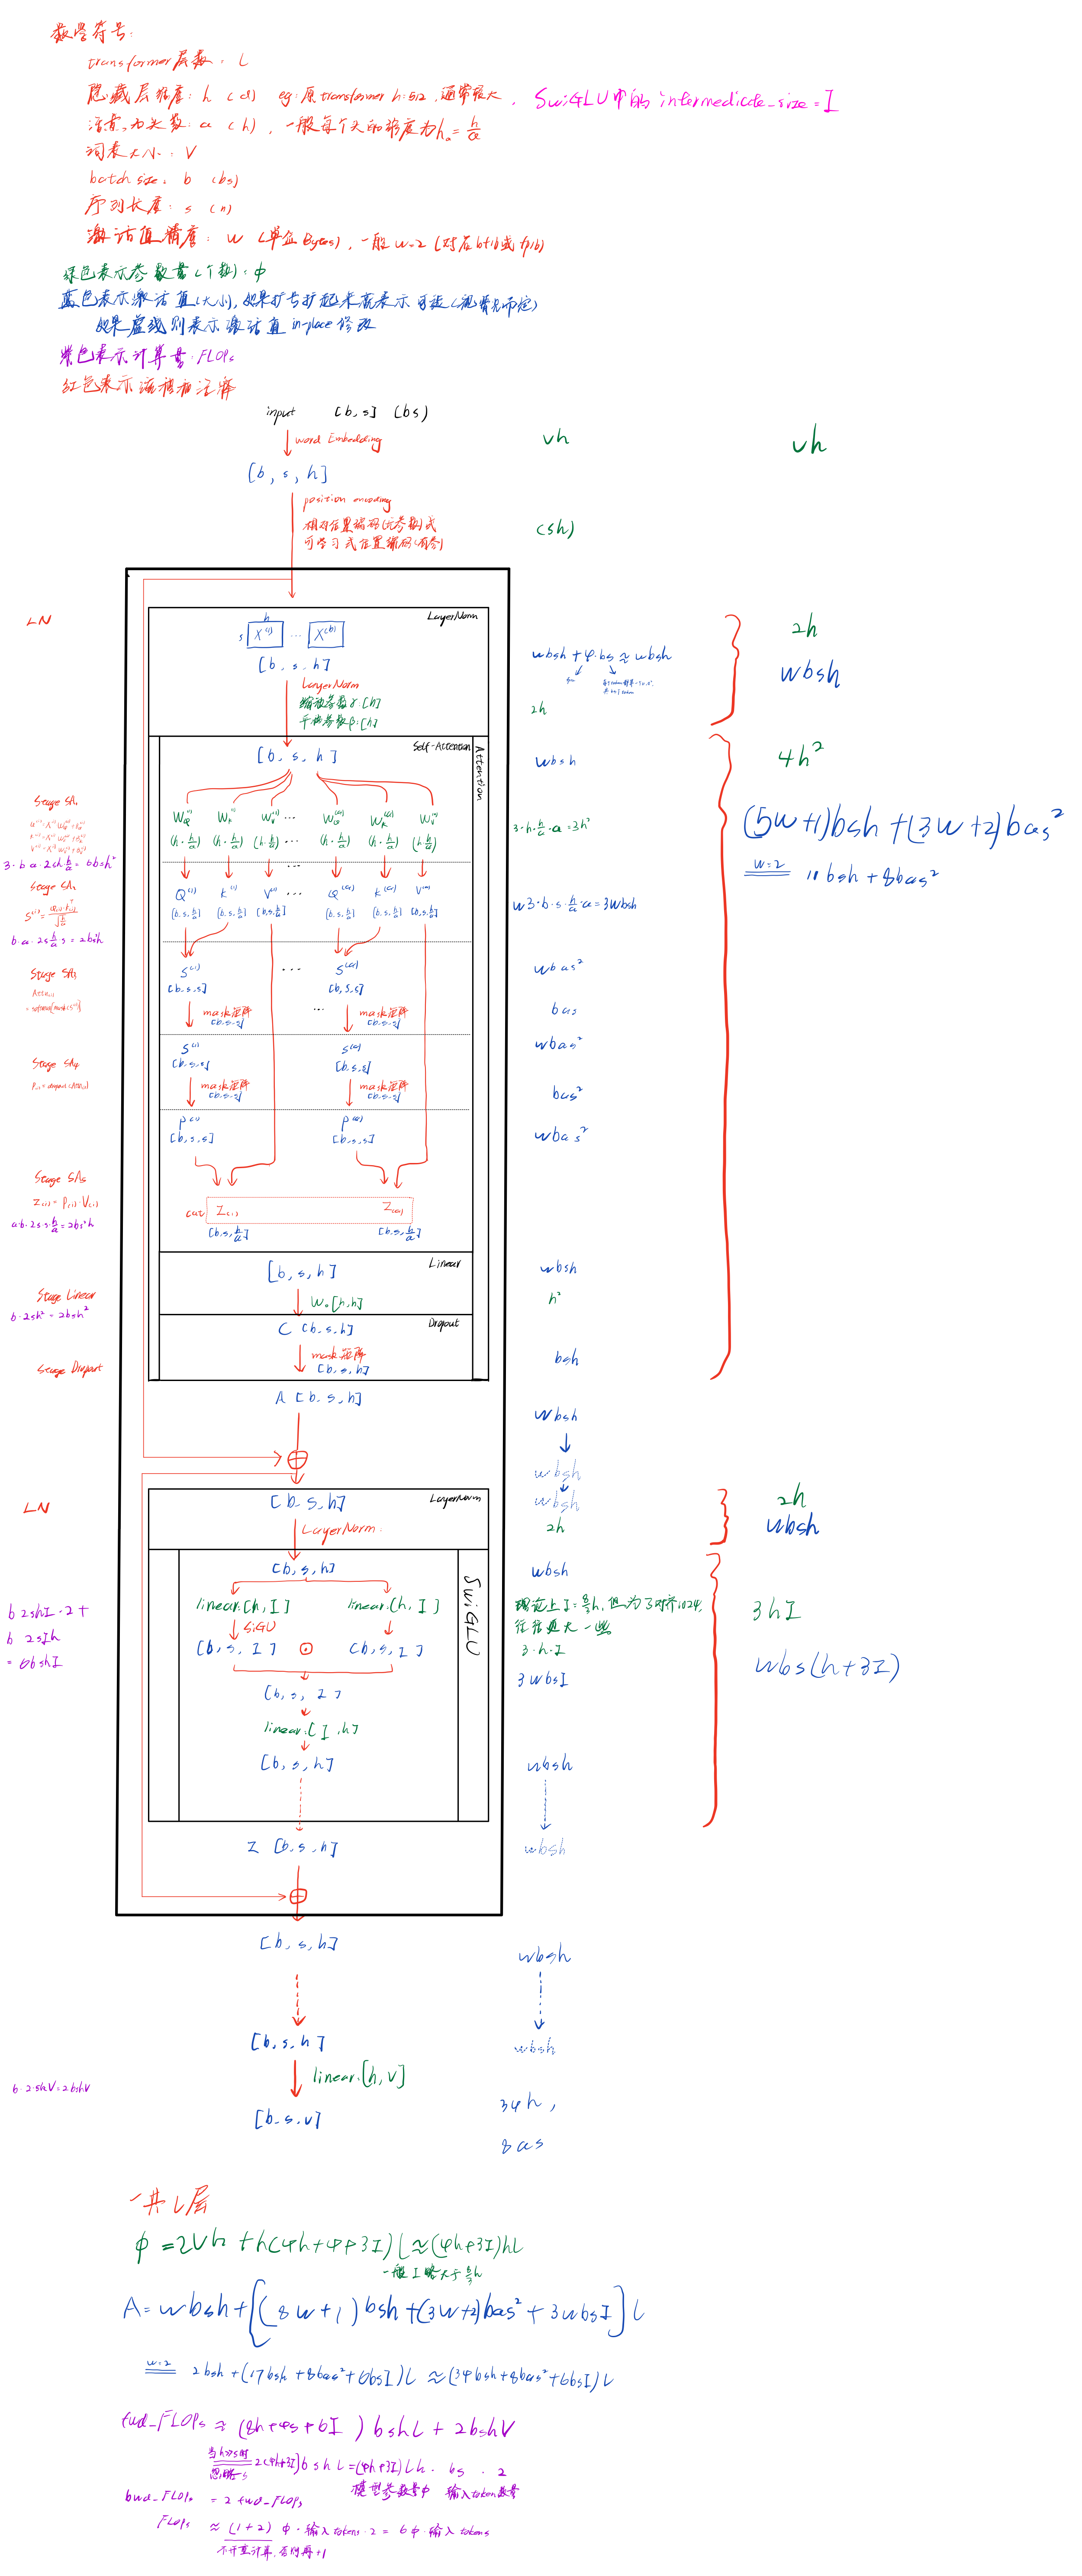 数学符号:
transformer层数: L
隐藏层维度: h (d) eg: 原transformer h=512, 通常很大, SwiGLU中的intermediate_size=I
注意力头数: a (h), 一般每个头的维度为hₐ=h/a
词表大小: V
batch size: b (bs)
序列长度: s (n)
激活值精度: w (单位Bytes), 一般w=2 (对应bf16或fp16)
绿色表示参数量(个数): φ
蓝色表示激活值(大小), 如果括号扩起来就表示可选(视情况而定)
如果虚线则表示激活值in-place修改
紫色表示计算量: FLOPs
红色表示流程和注释
input [b,s] (bs)
word Embedding
vh
vh
[b, s, h]
position encoding
相对位置编码(无参数)式
可学习式位置编码(有参)
(sh)
LN
LayerNorm
h
s X⁽¹⁾ ... X⁽ᵇ⁾
[b, s, h]
wbsh + 4·bs ≈ wbsh
2h
wbsh
LayerNorm
缩放参数γ: [h]
平移参数β: [h]
2h
Self-Attention
Attention
[b, s, h]
wbsh
4h²
(5w+1)bsh+(3w+2)bas²
w=2 11bsh+8bas²
Stage SA₁
W_Q⁽¹⁾ W_k⁽¹⁾ W_v⁽¹⁾ ... W_Q⁽ᵃ⁾ W_k⁽ᵃ⁾ W_v⁽ᵃ⁾
(h·h/a) (h·h/a) (h·h/a) ... (h·h/a) (h·h/a) (h·h/a)
3·h·h/a·a=3h²
3·b·a·2sh·h/a=6bsh²
Stage SA₂
Q⁽¹⁾ k⁽¹⁾ V⁽¹⁾ ... Q⁽ᵃ⁾ k⁽ᵃ⁾ V⁽ᵃ⁾
[b,s,h/a] [b,s,h/a] [b,s,h/a] [b,s,h/a] [b,s,h/a] [b,s,h/a]
w3·b·s·h/a·a=3wbsh
b·a·2s·h/a·s=2bs²h
Stage SA₃
S⁽¹⁾ ... S⁽ᵃ⁾
[b,s,s] [b,s,s]
wbas²
mask矩阵 ... mask矩阵
[b,s,s] [b,s,s]
bas
S⁽¹⁾ S⁽ᵃ⁾
[b,s,s] [b,s,s]
wbas²
Stage SA₄
mask矩阵 mask矩阵
[b,s,s] [b,s,s]
bas²
P⁽¹⁾ P⁽ᵃ⁾
[b,s,s] [b,s,s]
wbas²
Stage SA₅
Z₍ᵢ₎=P₍ᵢ₎·V₍ᵢ₎
a·b·2s·s·h/a=2bs²h
cat Z₍₁₎ Z₍ₐ₎
[b,s,h/a] [b,s,h/a]
Linear
[b, s, h]
wbsh
Stage Linear
b·2sh²=2bsh²
Wₒ[h,h]
h²
Dropout
C [b,s,h]
Stage Dropout
mask矩阵
[b,s,h]
bsh
A [b,s,h]
wbsh
wbsh
LN
[b,s,h]
LayerNorm
wbsh
2h
2h
wbsh
LayerNorm
[b,s,h]
wbsh
SwiGLU
linear:[h,I] linear:[h,I]
理论上I=8/3h, 但为了对齐1024, 往往更大一些
3·h·I
3hI
b·2shI·2+
b·2sIh
=6bshI
[b,s,I] ⊙ [b,s,I]
3wbsI
wbs(h+3I)
[b,s,I]
linear:[I,h]
[b,s,h]
wbsh
Z [b,s,h]
wbsh
[b,s,h]
wbsh
[b,s,h]
wbsh
linear:[h,V]
b·2·shV=2bshV
34h,
[b,s,v]
8as
一共L层
φ=2Vh+h(4h+4+3I)L≈(4h+3I)hL
一般I略大于8/3h
A=wbsh+[(8w+1)bsh+(3w+2)bas²+3wbsI]L
w=2 2bsh+(17bsh+8bas²+6bsI)L≈(34bsh+8bas²+6bsI)L
fwd_FLOPs≈(8h+4s+6I)bshL+2bshV
当h>>s时
忽略s
2(4h+3I)bshL=(4h+3I)Lh·bs·2
模型参数量φ 输入token数量
bwd_FLOPs=2fwd_FLOPs
FLOPs≈(1+2)φ·输入tokens·2=6φ·输入tokens
不开重计算, 否则再+1